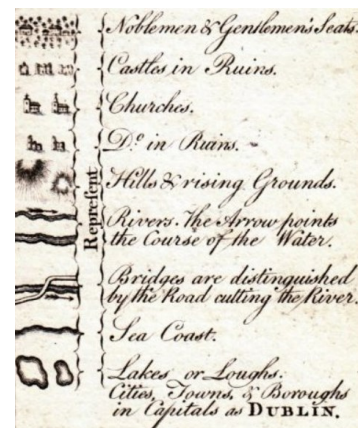 Noblemen & Gentlemen's Seats.
Castles in Ruins.
Churches.
Do. in Ruins.
Hills & rising Grounds.
Rivers. The Arrow points
the Course of the Water.
Bridges are distinguished
by the Road cutting the River.
Sea Coast.
Lakes or Loughs.
Cities, Towns, & Boroughs
in Capitals as DUBLIN.
Repreſent